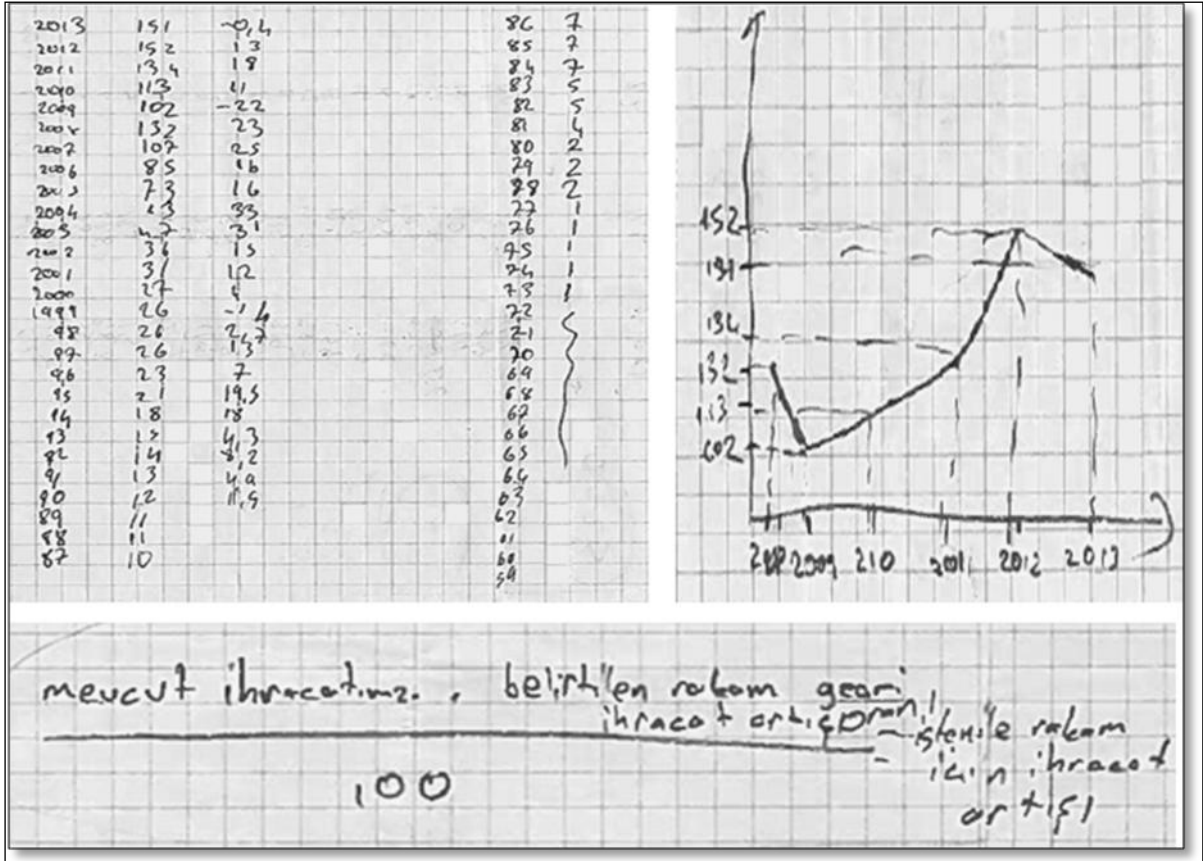 2013 151 -0,4
2012 152 13
2011 134 18
2010 113 11
2009 102 -22
2008 132 23
2007 107 25
2006 85 16
2005 73 16
2004 63 33
2003 47 31
2002 36 15
2001 31 12
2000 27
1999 26 -1,4
98 26 2,7
97 26 13
96 23 7
95 21 19,5
94 18 18
93 15 4,3
92 14 8,2
91 13 4,9
90 12 11,5
89 11
88 11
87 10
86 7
85 7
84 7
83 5
82 5
81 4
80 2
79 2
78 2
77 1
76 1
75 1
74 1
73 1
72
71
70
69
68
67
66
65
64
63
62
61
60
59
152
151
134
132
113
102
2009 210 2011 2012 2013
mevcut ihracatımız . belirtilen rakam
ihracat
istenile rakam
için ihracat
artışı
100